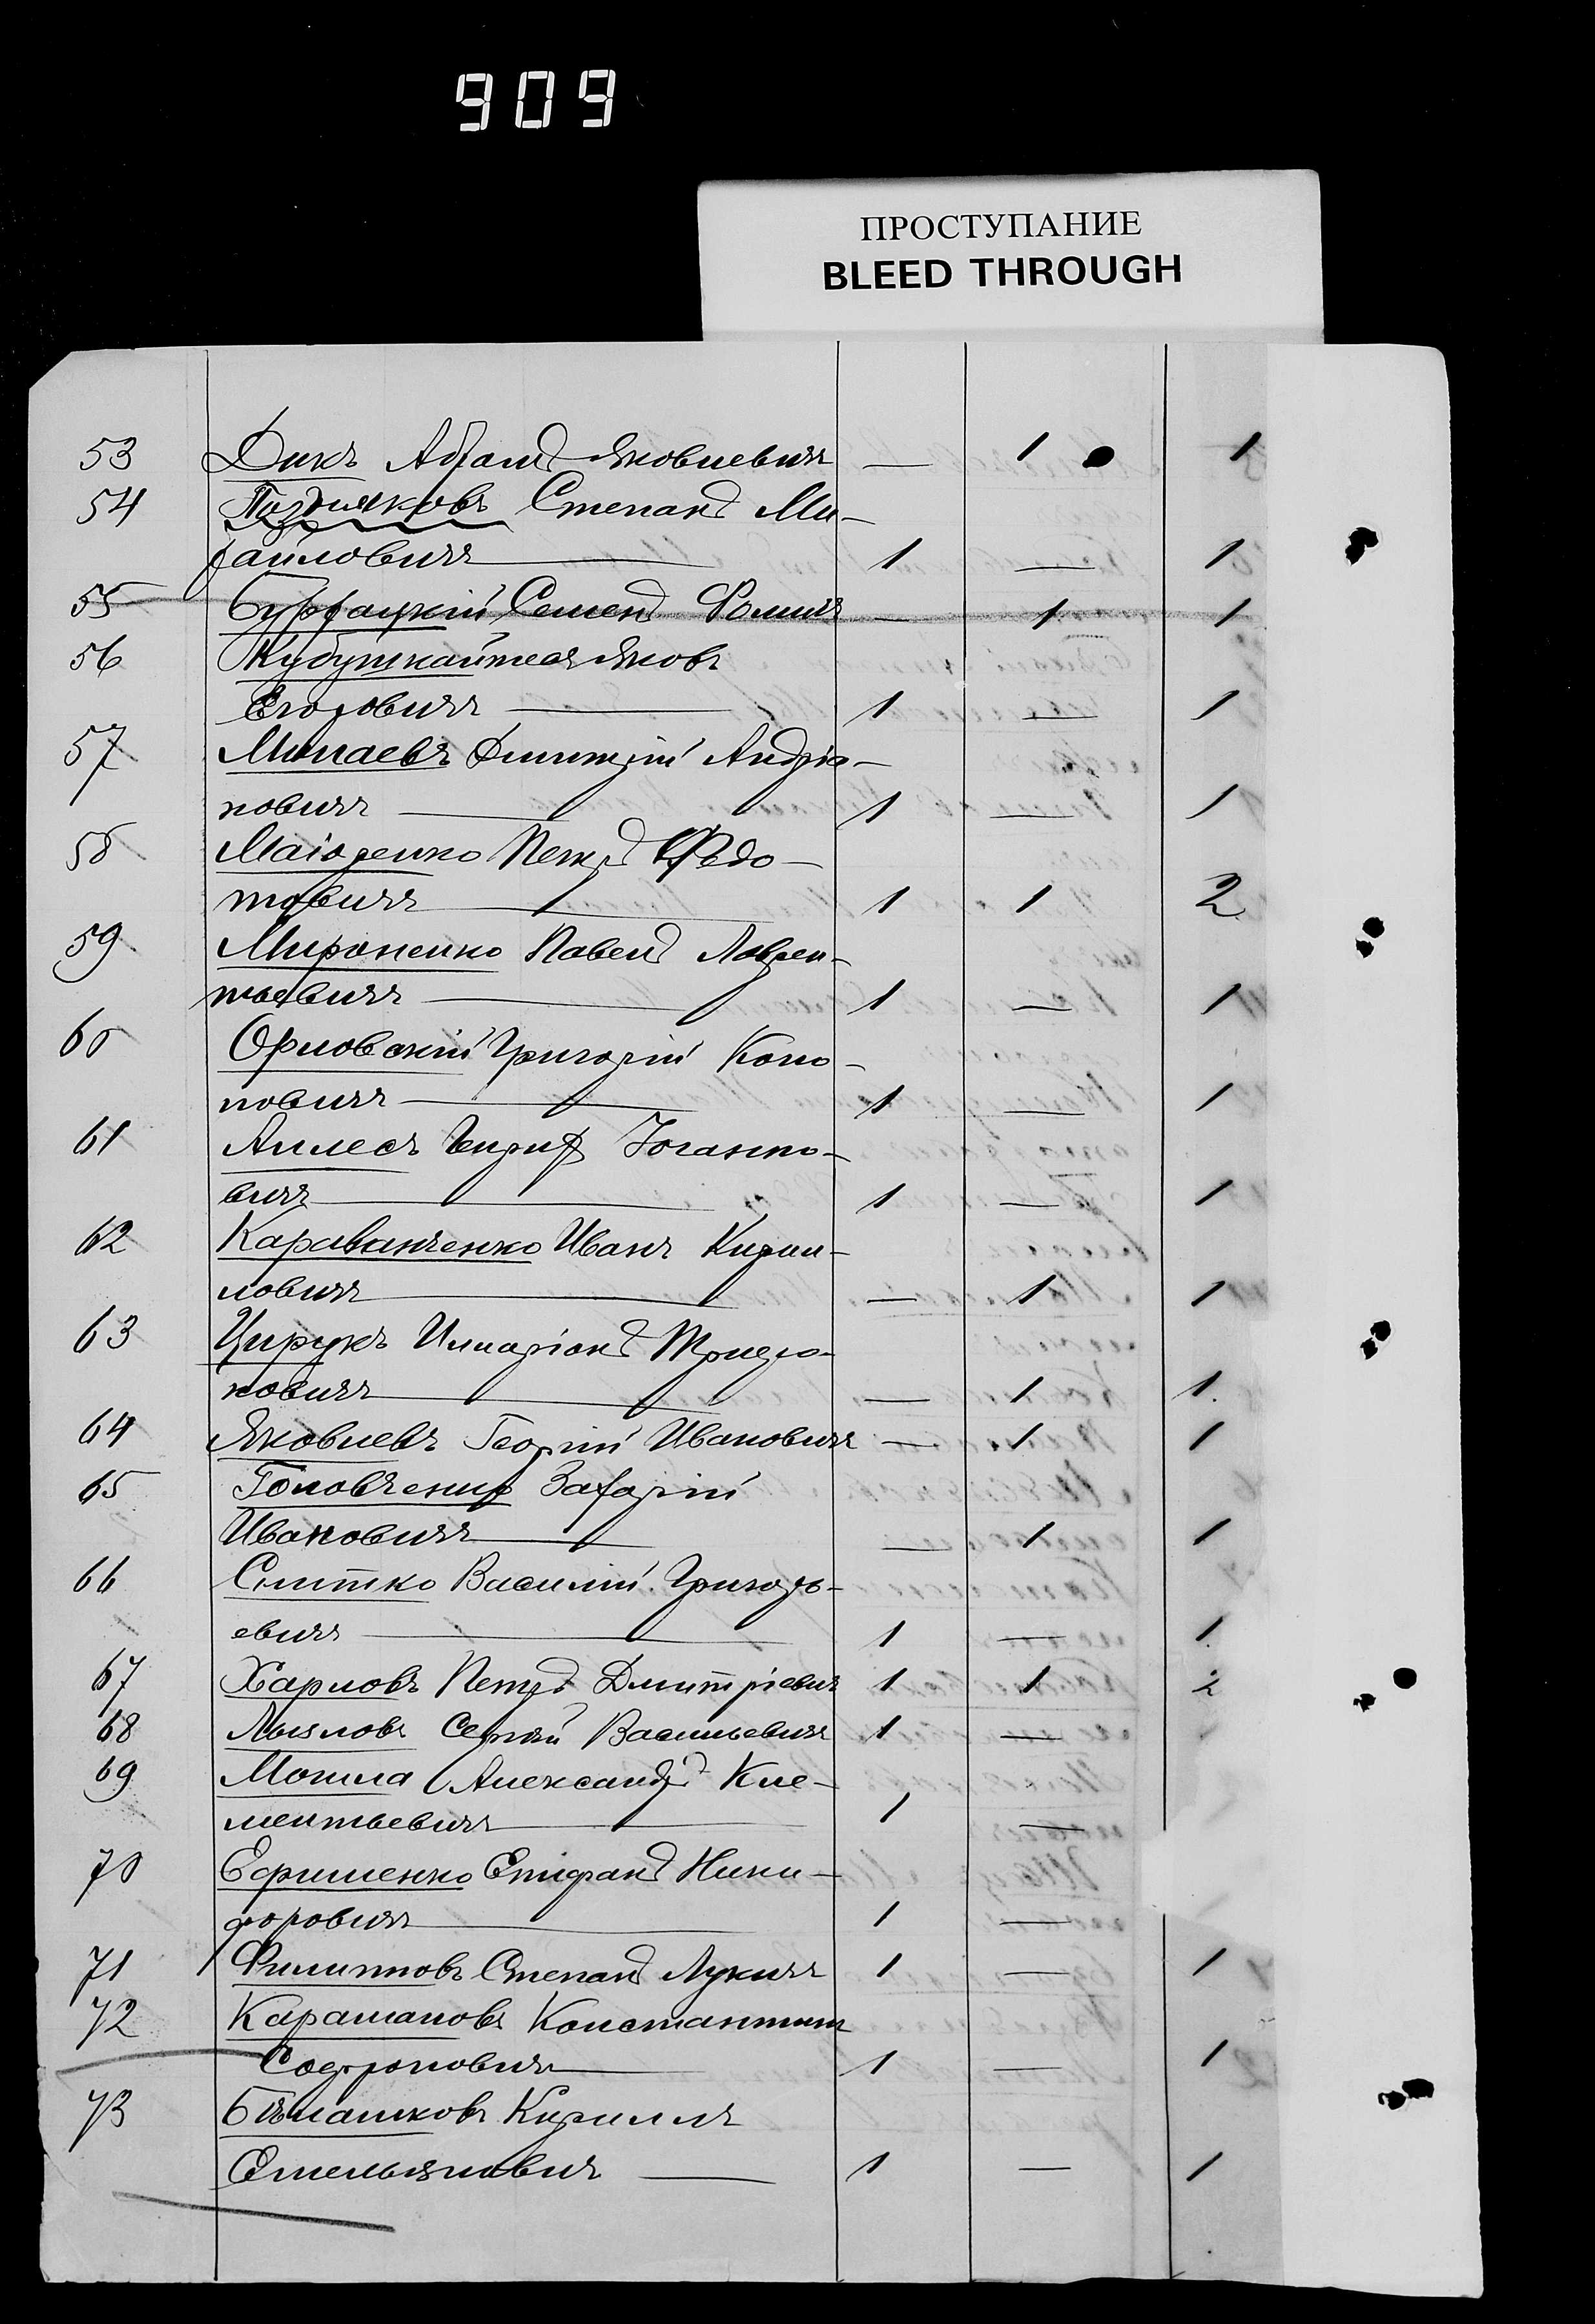 909
ПРОСТУПАНИЕ
BLEED THROUGH
53 Дикъ Абрамъ Яковлевичъ — 1 1
54 Поздняковъ Степанъ Ми-
хайловичъ 1 — 1
55 Семенъ Фомичъ — 1 1
56 Яковъ
Егоровичъ 1 — 1
57 Минаевъ Дмитрій Андріа-
новичъ 1 — 1
58 Маіоренко Петръ Ѳедо-
товичъ 1 1 2
59 Мироненко Павелъ Лаврен-
тьевичъ 1 — 1
60 Орловскій Григорій Коно-
новичъ 1 — 1
61 Генрих Іоганно-
вичъ 1 — 1
62 Караванченко Иванъ Кирил-
ловичъ — 1 1
63 Цирукъ Иларіонъ
новичъ — 1 1.
64 Яковлевъ Георгій Ивановичъ — 1 1
65 Головченко Захарій
Ивановичъ — 1 1
66 Слитко Василій Григорь-
евичъ 1 — 1
67 Харловъ Петръ Дмитріевич 1 1 2
68 Сергѣй Васильевичъ 1 —
69 Могила Александръ Кле-
ментьевичъ 1 —
70 Ефименко Епифанъ Ники-
форовичъ 1 —
71 Филипповъ Степанъ Лукичъ 1 — 1
72 Карамановъ Константин
Софроновичъ 1 — 1
73 Кириллъ
Емельяновичъ 1 — 1